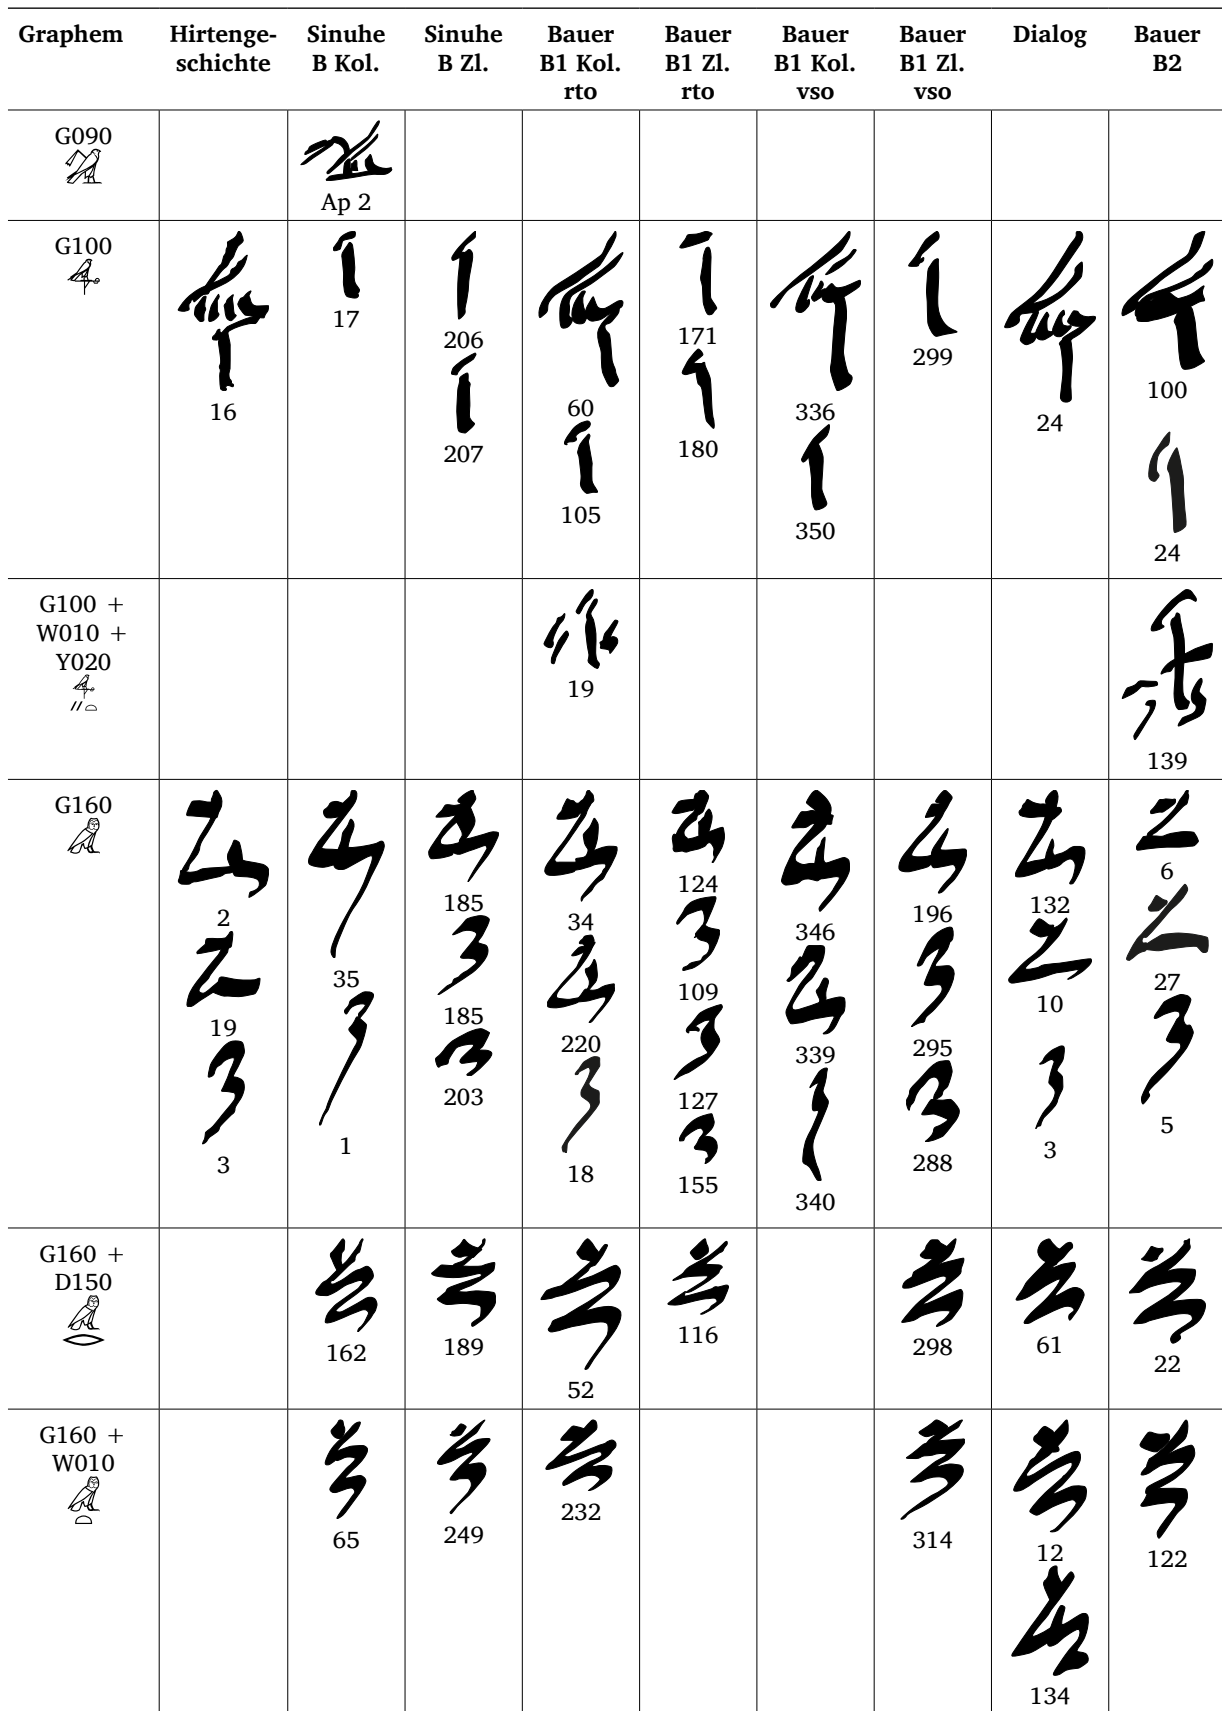 Graphem Hirtenge-schichte Sinuhe B Kol. Sinuhe B Zl. Bauer B1 Kol. rto Bauer B1 Zl. rto Bauer B1 Kol. vso Bauer B1 Zl. vso Dialog Bauer B2
G090
Ap 2
G100
16
17
206
207
60
105
171
180
336
350
299
24
100
24
G100 + W010 + Y020
19
139
G160
2
19
3
35
1
185
185
203
34
220
18
124
109
127
155
346
339
340
196
295
288
132
10
3
6
27
5
G160 + D150
162
189
52
116
298
61
22
G160 + W010
65
249
232
314
12
134
122